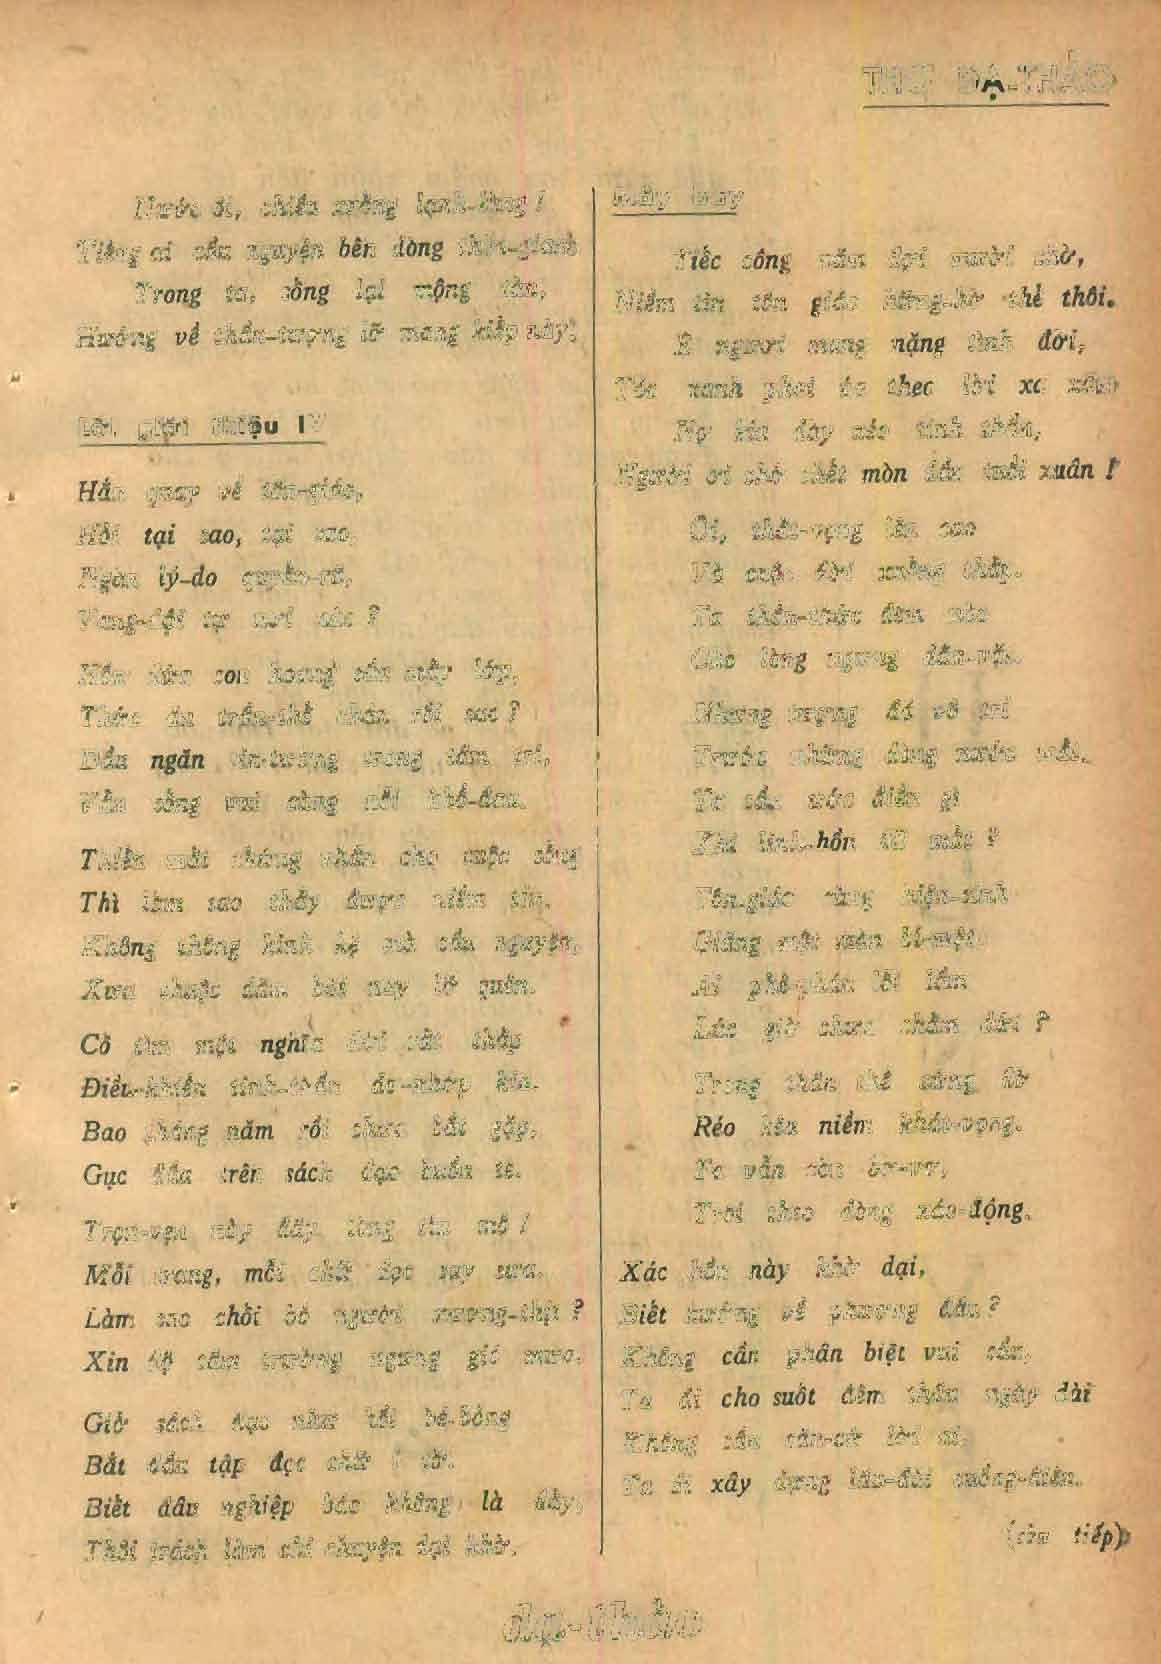 THƠ DẠ-THẢO
Nước ơi, chiều xuống lạnh-lùng !
Tiếng ai cầu nguyện bên dòng thời-gian
Trong ta, sống lại mộng tàn,
Hướng về thần-tượng lỡ mang kiếp này!
Lời giới thiệu IV
Hắn quay về tôn-giáo,
Hỏi tại sao, tại sao,
Ngàn lý-do quyến-rũ,
Vang-dội tự nơi nào ?
Hồn đứa con hoang sầu mấy lớp,
Thức ăn trần-thế chán rồi sao ?
Dẫu ngăn tin-tưởng trong tâm trí,
Vẫn sống vui cùng nỗi khổ-đau.
Thiếu một chứng nhân cho cuộc sống
Thì làm sao thấy được niềm tin.
Không thông kinh kệ mà cầu nguyện,
Xưa thuộc dăm bài nay lỡ quên.
Cố tìm một nghĩa đời rất thấp
Điều-khiển tinh-thần
Bao tháng năm rồi chưa bắt gặp,
Gục đầu trên sách đạo buồn
Trọn-vẹn này đây từng tín mộ !
Mỗi trang, mỗi chữ đọc say sưa.
Làm sao chối bỏ người xương-thịt ?
Xin độ tâm trường ngưng gió mưa.
Giở sách đạo như hồi bé-bỏng
Bắt đầu tập đọc chữ i tờ.
Biết đâu nghiệp báo không là đấy,
Thôi trách làm chi chuyện dại khờ.
Mây bay
Tiếc công năm đợi người chờ,
Niềm tin tôn giáo hững-hờ thế thôi.
Ê ngươi mang nặng tình đời,
Tóc xanh phơi theo lời xa xăm
Nợ kia dày xéo tinh thần,
Người ơi chờ chết mòn dần tuổi xuân !
Ôi, thất-vọng lên cao
Và cuộc đời xuống thấp.
Ta thổn-thức đêm nào
Cho lòng ngưng dằn-vặt.
Nhưng tượng đá vô tri
Trước những dòng nước mắt.
Ta cầu ước điều gì
Khi linh-hồn đã mất ?
Tôn-giáo hiện-sinh
Giăng một màn bí-mật.
Ai phê-phán lỗi lầm
Lúc giờ chưa chấm dứt ?
Trong thân thể cứng đờ
Réo kêu niềm khát-vọng.
Ta vẫn còn bơ-vơ,
Trôi theo dòng xáo-động.
Xác hồn này khờ dại,
Biết hướng về phương đâu ?
Không cần phân biệt vui sầu,
Ta đi cho suốt đêm thâu ngày dài
Không cần lời ai,
Ta đi xây dựng lâu-đài cuồng-điên.
(còn tiếp)
dạ-thảo